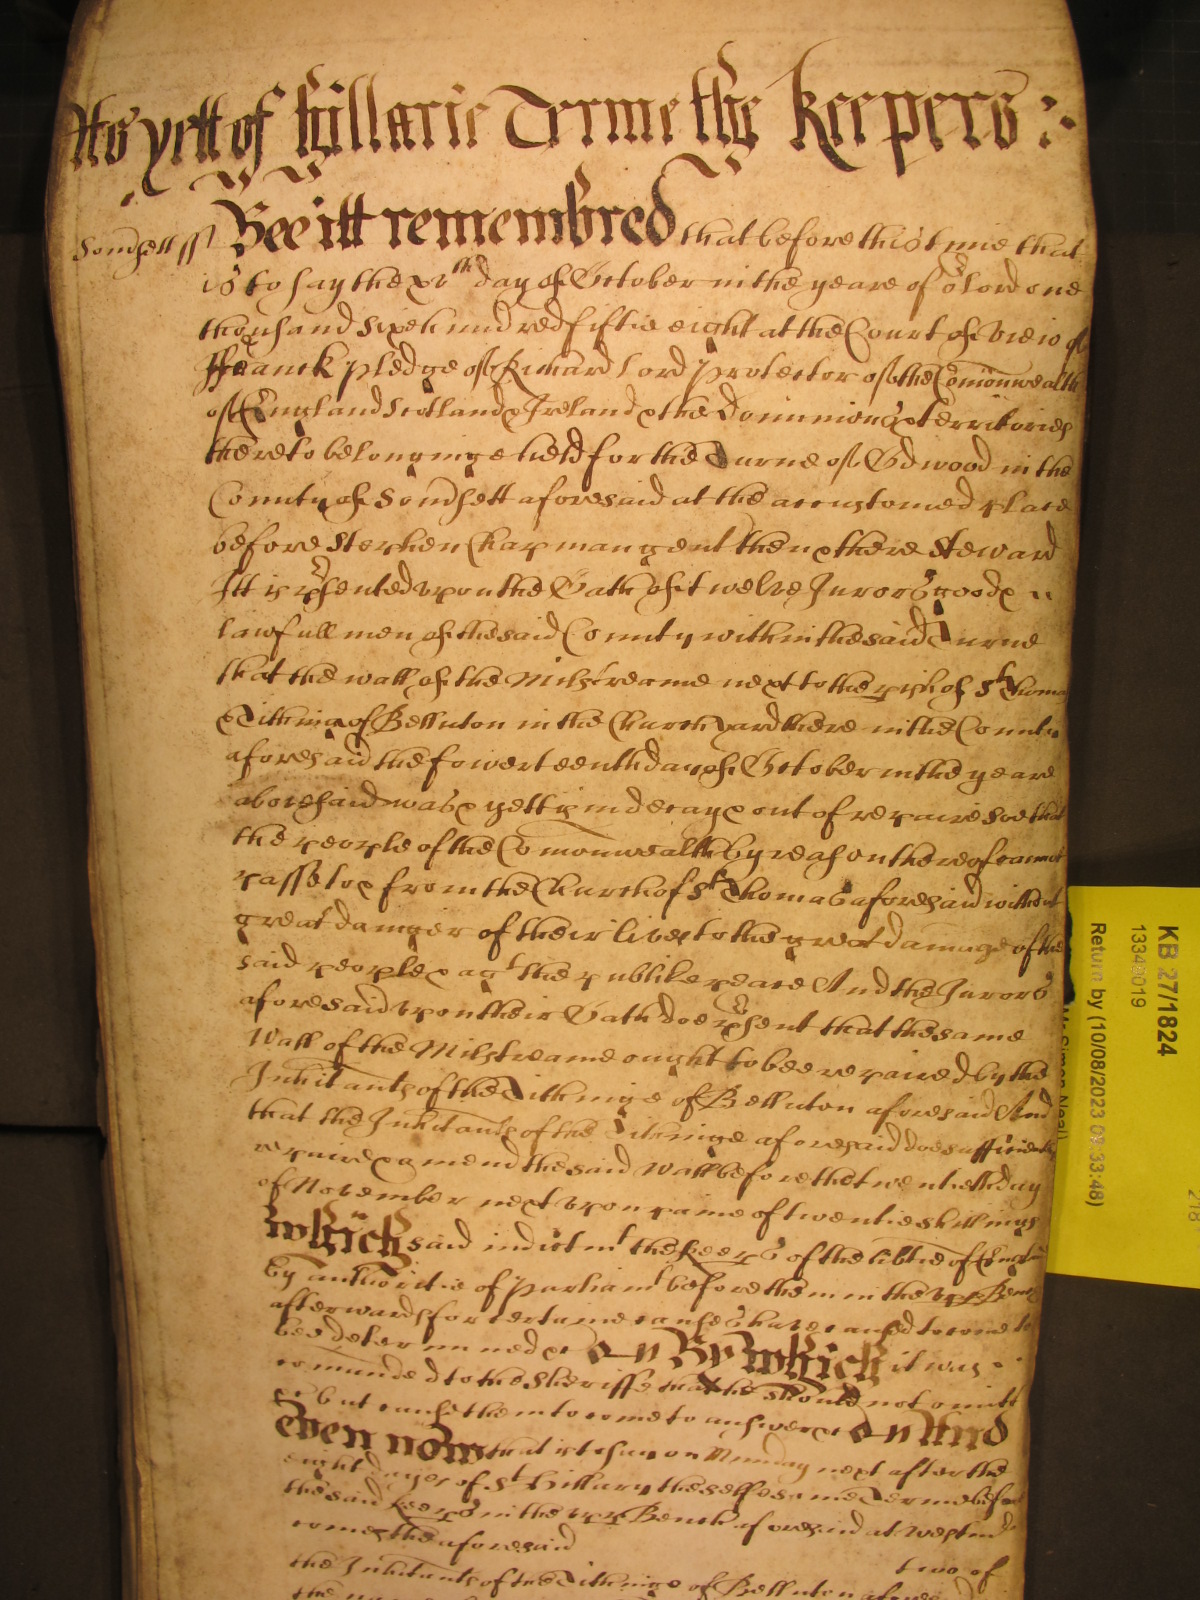 As yett of Hillarie Terme the Keepers
Somsett ss Bee itt remembred that before this tyme that
is to say the xvth day of October in the yeare of or Lord one
thousand sixe hundred fiftie eight at the Court of view of
ffranck pledge of Richard Lord Protector of the Comonwealth
of England Scotland & Ireland & the Dominions & territories
thereto belonginge held for the Turne of in the
County of Somsett aforesaid at the accustomed place
before Stephen Chapman gent then & there Steward
Itt is psented upon the Oath of twelve Jurors good &
lawfull men of the said County within the said Turne
that the wall of the Milstreame next to the pish of St Thoma
& Tithing of Belluton in the Church yard there in the County
aforesaid the fowerteenth day of October in the yeare
abovesaid was & yett is in decay & out of repaire soe that
the people of the Comonwealth by reason thereof cannot
passe to & from the Church of St Thomas aforesaid without
great danger of their lives to the great damage of the
said people & agt the publike peace And the Jurors
aforesaid upon their Oath doe psent that the same
Wall of the Milstreame ought to bee repaired by the
Inhitants of the Tithinge of Belluton aforesaid And
that the Inhitants of the Tithinge aforesaid doe sufficiently
repaire & amend the said Wall before the twentieth day
of November next upon paine of twentie shillings
Which said indictmt the Keeps of the libtie of England
by authoritie of Parliamt before them in the upp Bench
afterwards for certaine causes have caused to come to
bee determined &c And By Which it was
comanded to the Sheriffe that he should not omitt
&c but cause them to come to answere &c And
Even now that is to say on Munday next after the
eight dayes of St Hillary the selfe same Terme before
the said Keeps in the upp Bench aforesaid at Westmr
comes the aforesaid two of
the Inhitants of the Tithinge of Belluton
KB 27/1824
13340019
Return by (10/08/2023 08:33:48)